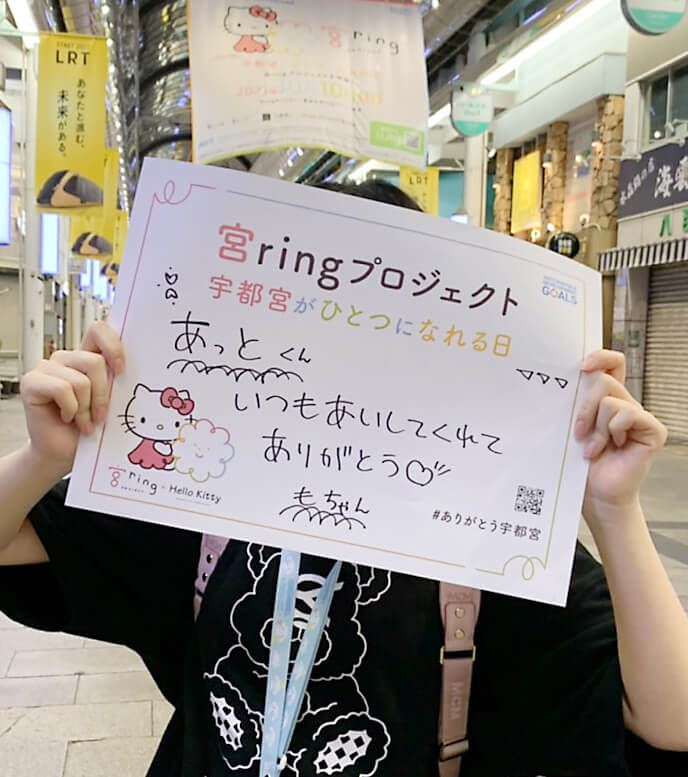 START 2023
LRT
あなたと進む、
未来がある。
宮ring
LRT
宮ringプロジェクト
GOALS
宇都宮がひとつになれる日
あっとくん
いつもあいしてくれて
ありがとう♡
もちゃん
宮ring × Hello Kitty
#ありがとう宇都宮
MCM